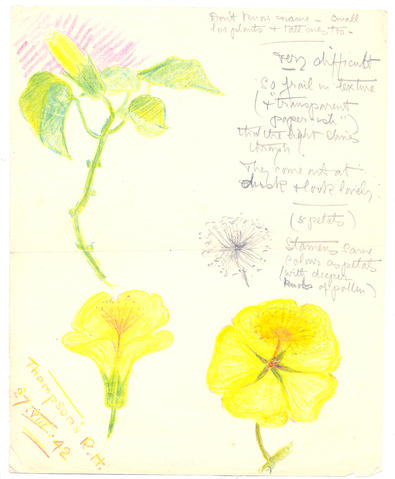 Don't know name – Small
low plants & tall ones too.
very difficult
So frail in texture
(& "transparent
paper-ish")
that the light shines
through.
They come out at
dusk & look lovely!
(5 petals)
Stamens same
colour as petals
(with deeper
knobs of pollen)
Thompson's P.H.
27.VIII.42